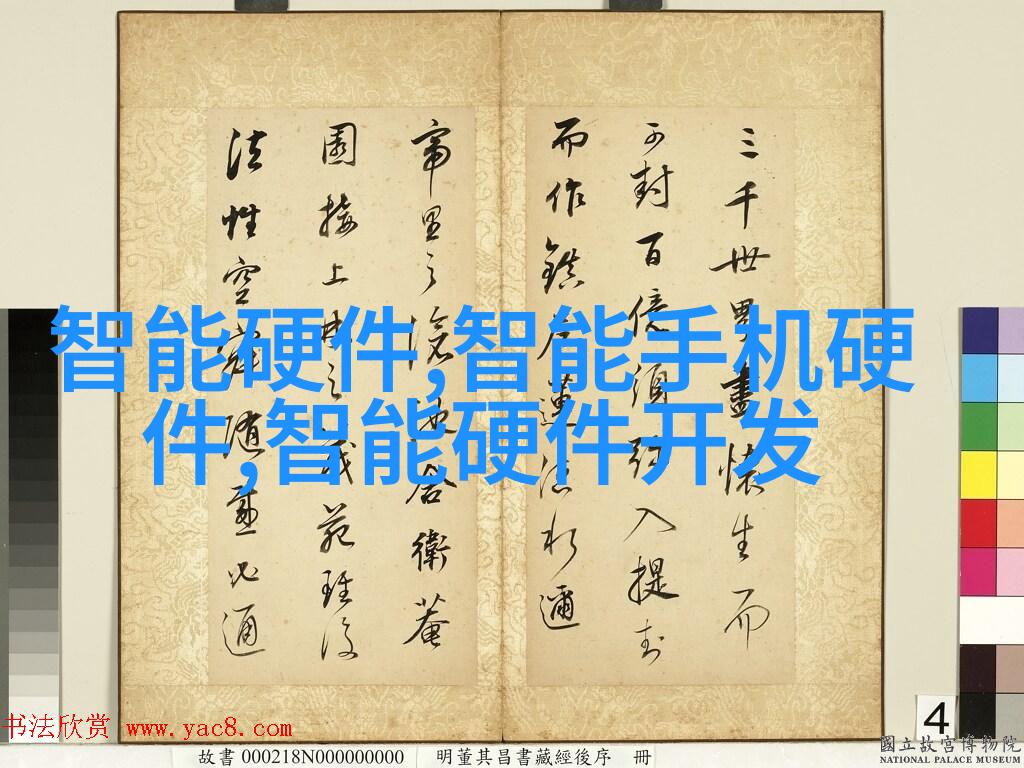 三千世界盡懷生而
可封百億須彌入提封
而作鎮蓮沼於邇
里之滄波舍衛菴
園接上林之茂苑理沒
法性空寂隨感必通
智能硬件,智能手机硬
件,智能硬件开发
4
书法欣赏 www.yac8.com
故書 000218N000000000 明董其昌書藏經後序 冊
國立故宮博物院
NATIONAL PALACE MUSEUM